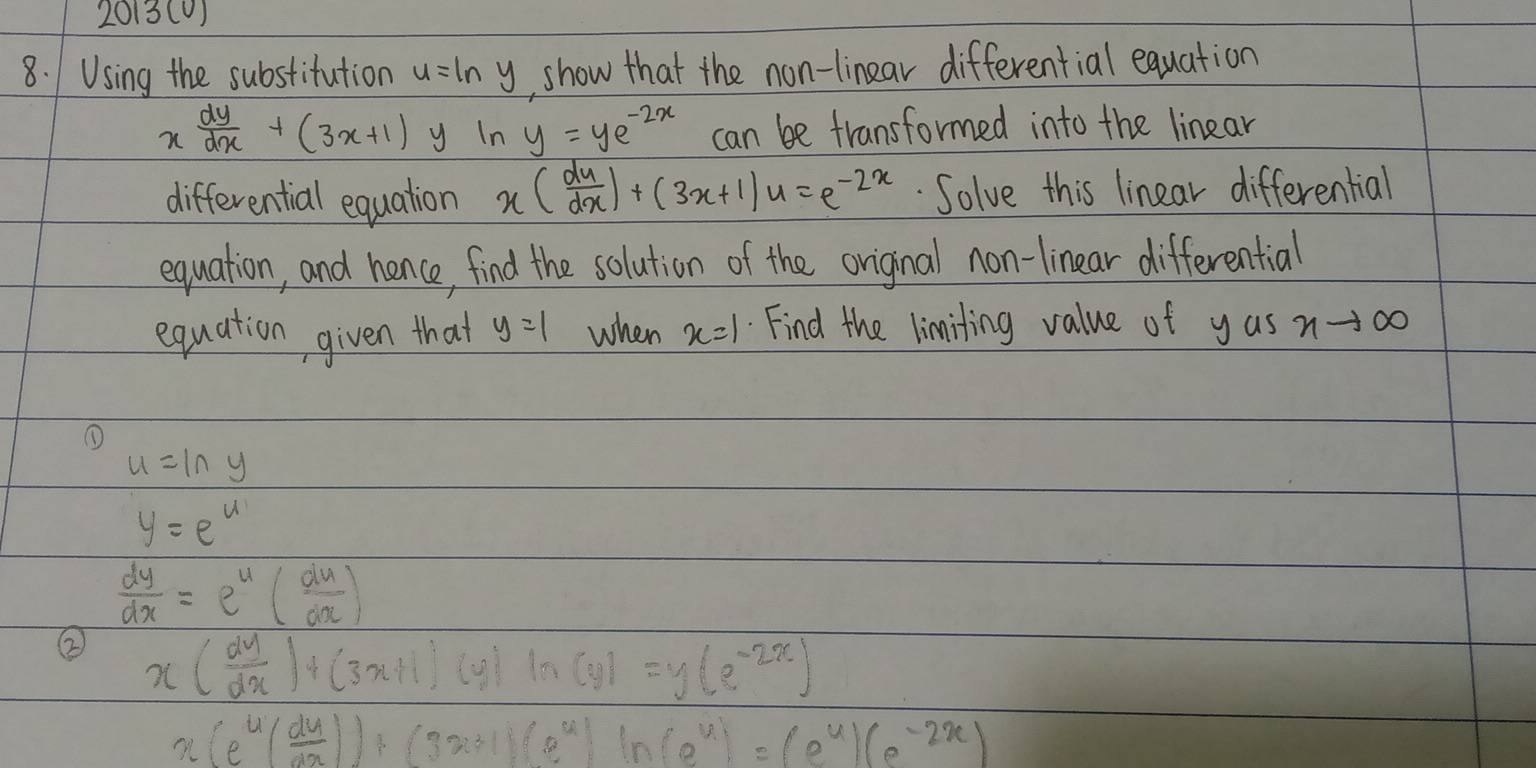 2013(U)
8. Using the substitution u=ln y, show that the non-linear differential equation
x dy/dx + (3x+1) y ln y = ye^-2x can be transformed into the linear
differential equation x (du/dx) + (3x+1)u = e^-2x. Solve this linear differential
equation, and hence, find the solution of the original non-linear differential
equation, given that y=1 when x=1. Find the limiting value of y as x→∞
① u = ln y
y = e^u
dy/dx = e^u (du/dx)
② x (dy/dx) + (3x+1) (y) ln (y) = y(e^-2x)
x(e^u(du/dx)) + (3x+1)(e^u) ln(e^u) = (e^u)(e^-2x)